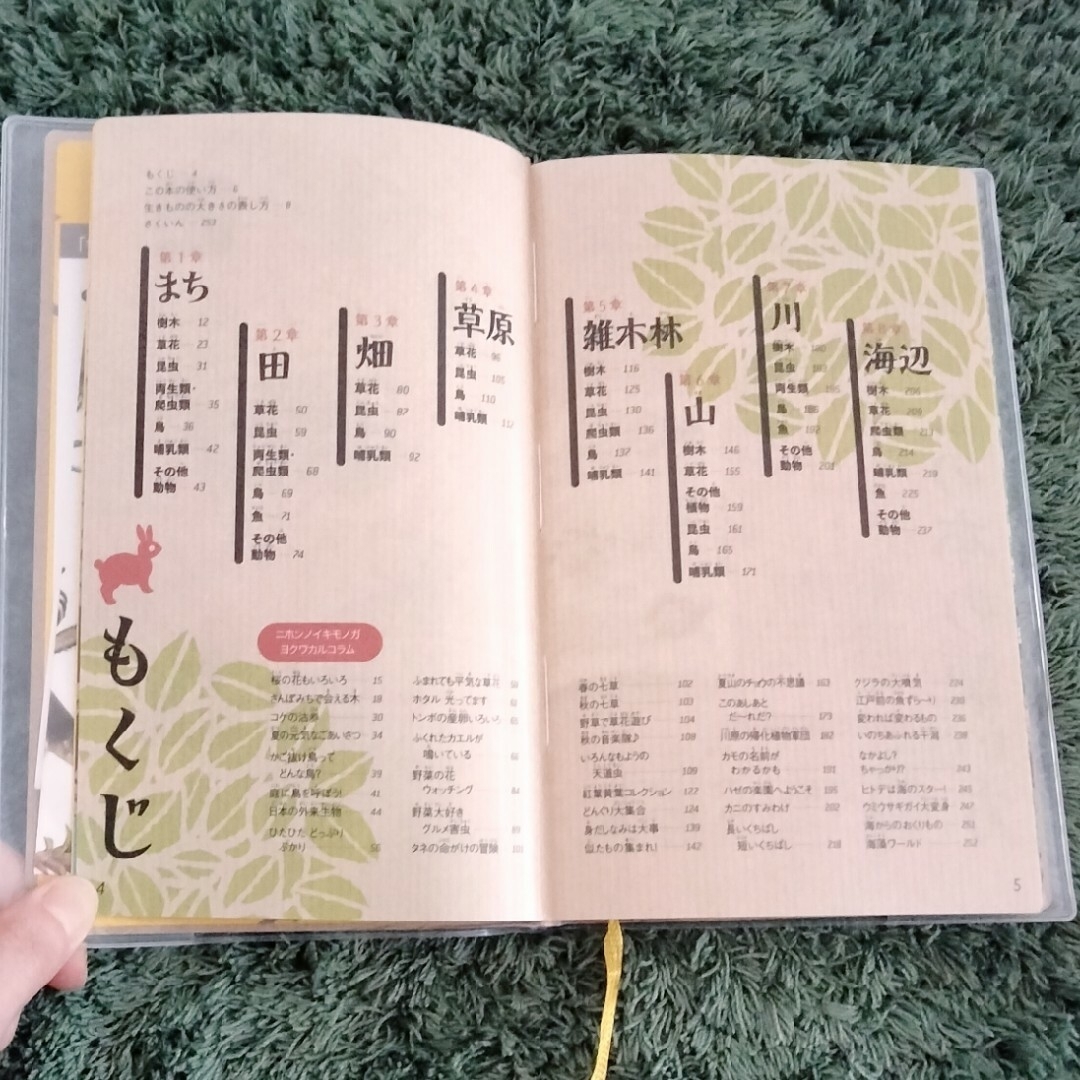 もくじ 4
この本の使い方 6
生きものの大きさの表し方 8
さくいん 253
第1章
まち
樹木 12
草花 23
昆虫 31
両生類・
爬虫類 35
鳥 36
哺乳類 42
その他
動物 43
第2章
田
草花 50
昆虫 59
両生類・
爬虫類 68
鳥 69
魚 71
その他
動物 74
第3章
畑
草花 80
昆虫 87
鳥 90
哺乳類 92
第4章
草原
草花 96
昆虫 105
鳥 110
哺乳類 112
第5章
雑木林
樹木 116
草花 125
昆虫 130
爬虫類 136
鳥 137
哺乳類 141
第6章
山
樹木 146
草花 155
その他
植物 159
昆虫 161
鳥 165
哺乳類 171
第7章
川
樹木
昆虫
両生類
鳥
魚 192
その他
動物 201
第8章
海辺
樹木
草花
爬虫類
鳥 214
哺乳類 219
魚 225
その他
動物 237
もくじ
ニホンノイキモノガ
ヨクワカルコラム
桜の花もいろいろ 15
さんぽみちで会える木 18
コケの法則 30
夏の元気なごあいさつ 34
かご抜け鳥って
どんな鳥? 39
庭に鳥を呼ぼう! 41
日本の外来生物 44
ひたひた どっぷり
ぷかり 56
ふまれても平気な草花
ホタル 光ってます
トンボの産卵いろいろ
ふくれたカエルが
鳴いている
野菜の花
ウォッチング 84
野菜大好き
グルメ害虫
タネの命がけの冒険
春の七草 102
秋の七草 103
野草で草花遊び 104
秋の音楽隊♪ 109
いろんなもようの
天道虫 109
紅葉黄葉コレクション 122
どんぐり大集合 124
身だしなみは大事 139
似たもの集まれ! 142
夏山のチョウの不思議 163
このあしあと
だーれだ? 173
川原の帰化植物軍団 182
カモの名前が
わかるかも 191
ハゼの楽園へようこそ 195
カニのすみわけ 202
長いくちばし
短いくちばし 218
クジラの大噴気 224
江戸前の魚ずらーり 235
変われば変わるもの 236
いのちあふれる干潟 238
なかよし?
ちゃっかり!? 243
ヒトデは海のスター! 245
ウミウサギガイ大変身 247
海からのおくりもの 251
海藻ワールド 252
4
5